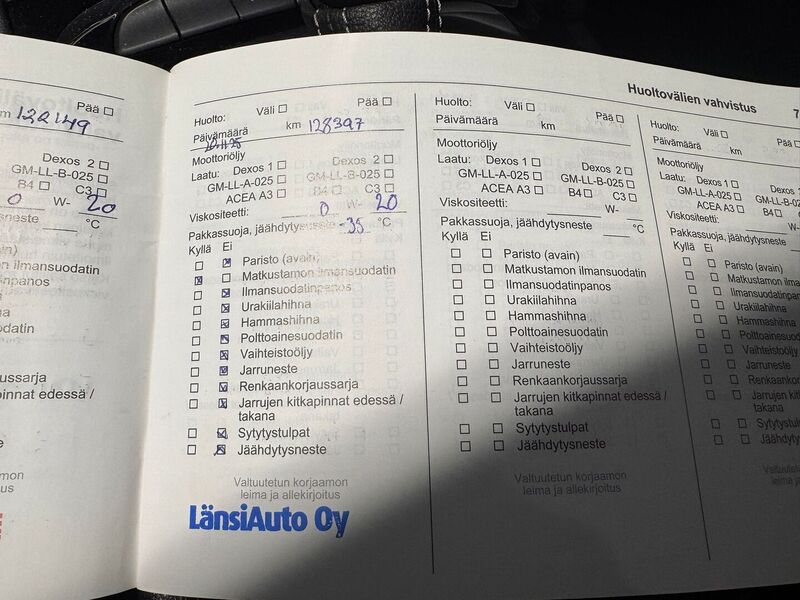 Huoltovälien vahvistus
7
Pää ☐
km 122149
Dexos 2 ☐
GM-LL-B-025 ☐
B4 ☐ C3 ☐
0 W- 20
°C
ilmansuodatin
Huolto: Väli ☐ Pää ☐
Päivämäärä km 128397
Moottoriöljy
Laatu: Dexos 1 ☐ Dexos 2 ☐
GM-LL-A-025 ☐ GM-LL-B-025 ☐
ACEA A3 ☐ B4 ☐ C3 ☐
Viskositeetti: 0 W- 20
Pakkassuoja, jäähdytysneste -35 °C
Kyllä Ei
☐ ☒ Paristo (avain)
☒ ☐ Matkustamon ilmansuodatin
☐ ☒ Ilmansuodatinpanos
☐ ☒ Urakiilahihna
☐ ☒ Hammashihna
☐ ☒ Polttoainesuodatin
☐ ☒ Vaihteistoöljy
☐ ☒ Jarruneste
☐ ☒ Renkaankorjaussarja
☐ ☒ Jarrujen kitkapinnat edessä /
takana
☐ ☒ Sytytystulpat
☐ ☒ Jäähdytysneste
Valtuutetun korjaamon
leima ja allekirjoitus
LänsiAuto Oy
Huolto: Väli ☐ Pää ☐
Päivämäärä km
Moottoriöljy
Laatu: Dexos 1 ☐ Dexos 2 ☐
GM-LL-A-025 ☐ GM-LL-B-025 ☐
ACEA A3 ☐ B4 ☐ C3 ☐
Viskositeetti: W-
Pakkassuoja, jäähdytysneste °C
Kyllä Ei
☐ ☐ Paristo (avain)
☐ ☐ Matkustamon ilmansuodatin
☐ ☐ Ilmansuodatinpanos
☐ ☐ Urakiilahihna
☐ ☐ Hammashihna
☐ ☐ Polttoainesuodatin
☐ ☐ Vaihteistoöljy
☐ ☐ Jarruneste
☐ ☐ Renkaankorjaussarja
☐ ☐ Jarrujen kitkapinnat edessä /
takana
☐ ☐ Sytytystulpat
☐ ☐ Jäähdytysneste
Valtuutetun korjaamon
leima ja allekirjoitus
Huolto: Väli ☐
Päivämäärä km
Moottoriöljy
Laatu: Dexos 1 ☐
GM-LL-A-025 ☐
ACEA A3 ☐ B4 ☐
Viskositeetti:
Pakkassuoja, jäähdytysneste
Kyllä Ei
☐ ☐ Paristo (avain)
☐ ☐ Matkustamon
☐ ☐ Ilmansuodatinpanos
☐ ☐ Urakiilahihna
☐ ☐ Hammashihna
☐ ☐ Polttoainesuodatin
☐ ☐ Vaihteistoöljy
☐ ☐ Jarruneste
☐ ☐ Renkaankorjaussarja
☐ ☐ Jarrujen kitkapinnat
takana
☐ ☐ Sytytystulpat
☐ ☐